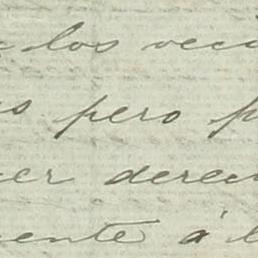 a los veci
os pero p
er derec
mente á l